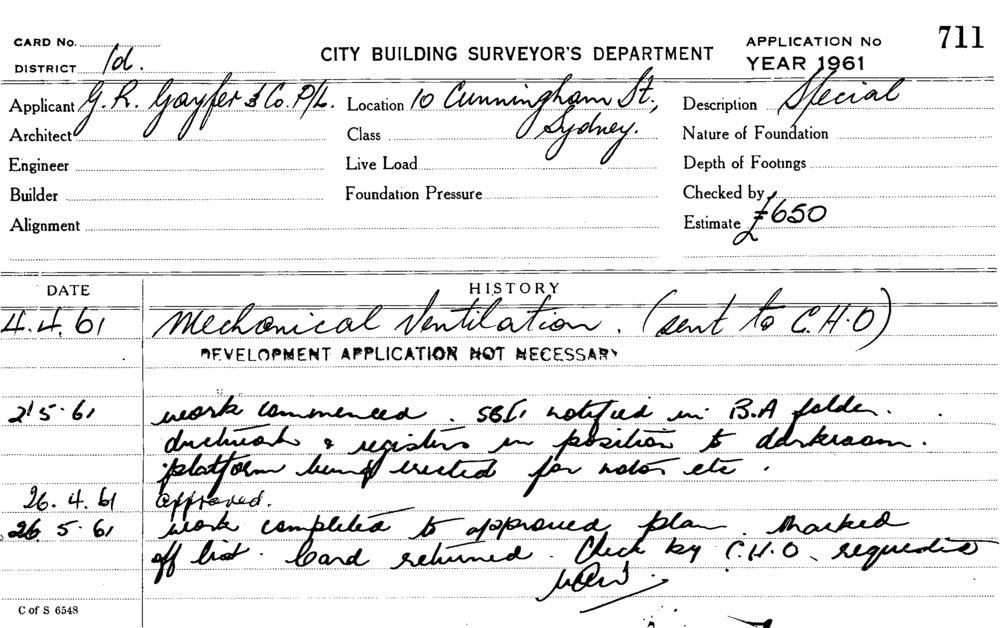 711
CARD No.
CITY BUILDING SURVEYOR'S DEPARTMENT
APPLICATION No
DISTRICT 1d.
YEAR 1961
Applicant G. R. Gayfer & Co. P/L. Location 10 Cunningham St., Description Special
Architect Class Sydney. Nature of Foundation
Engineer Live Load Depth of Footings
Builder Foundation Pressure Checked by
Alignment Estimate £650
DATE HISTORY
4.4.61 Mechanical Ventilation. (sent to C.H.O)
DEVELOPMENT APPLICATION NOT NECESSARY
2.5.61 work commenced. notified in B.A folder.
ductwork & registers in position to darkroom.
platform being erected for motor etc.
26.4.61 approved.
26.5.61 work completed to approved plan. Marked
off list. Card returned. Check by C.H.O. requested
C of S 6548